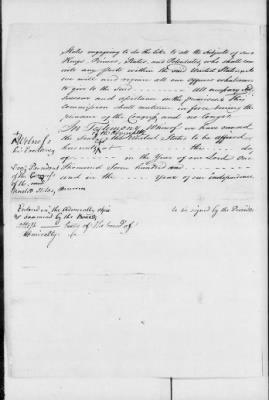 States engaging to do the like to all the Subjects of such
Kings, Princes, States, and Potentates, who shall can
with any fleets within the said United States, and
we will and require all our Officers whatsoever
to give to the said All necessary aid
Succour and assistance in the premises. This
Commission shall continue in force during the
pleasure of the Congress and no longer.
In Testimony Whereof we have caused
of the Admiralty
the Seal of the United States to be affixed
hereunto at this day
of in the Year of our Lord One
Thousand Seven hundred and
and in the Year of our independence
Witness
his Excellency
Esqr. President
of the Congress
of the said
United States, America
Entered in the Admiralty office
& examined by the Board
Attest Secy of the board of
Admiralty
to be signed by the President